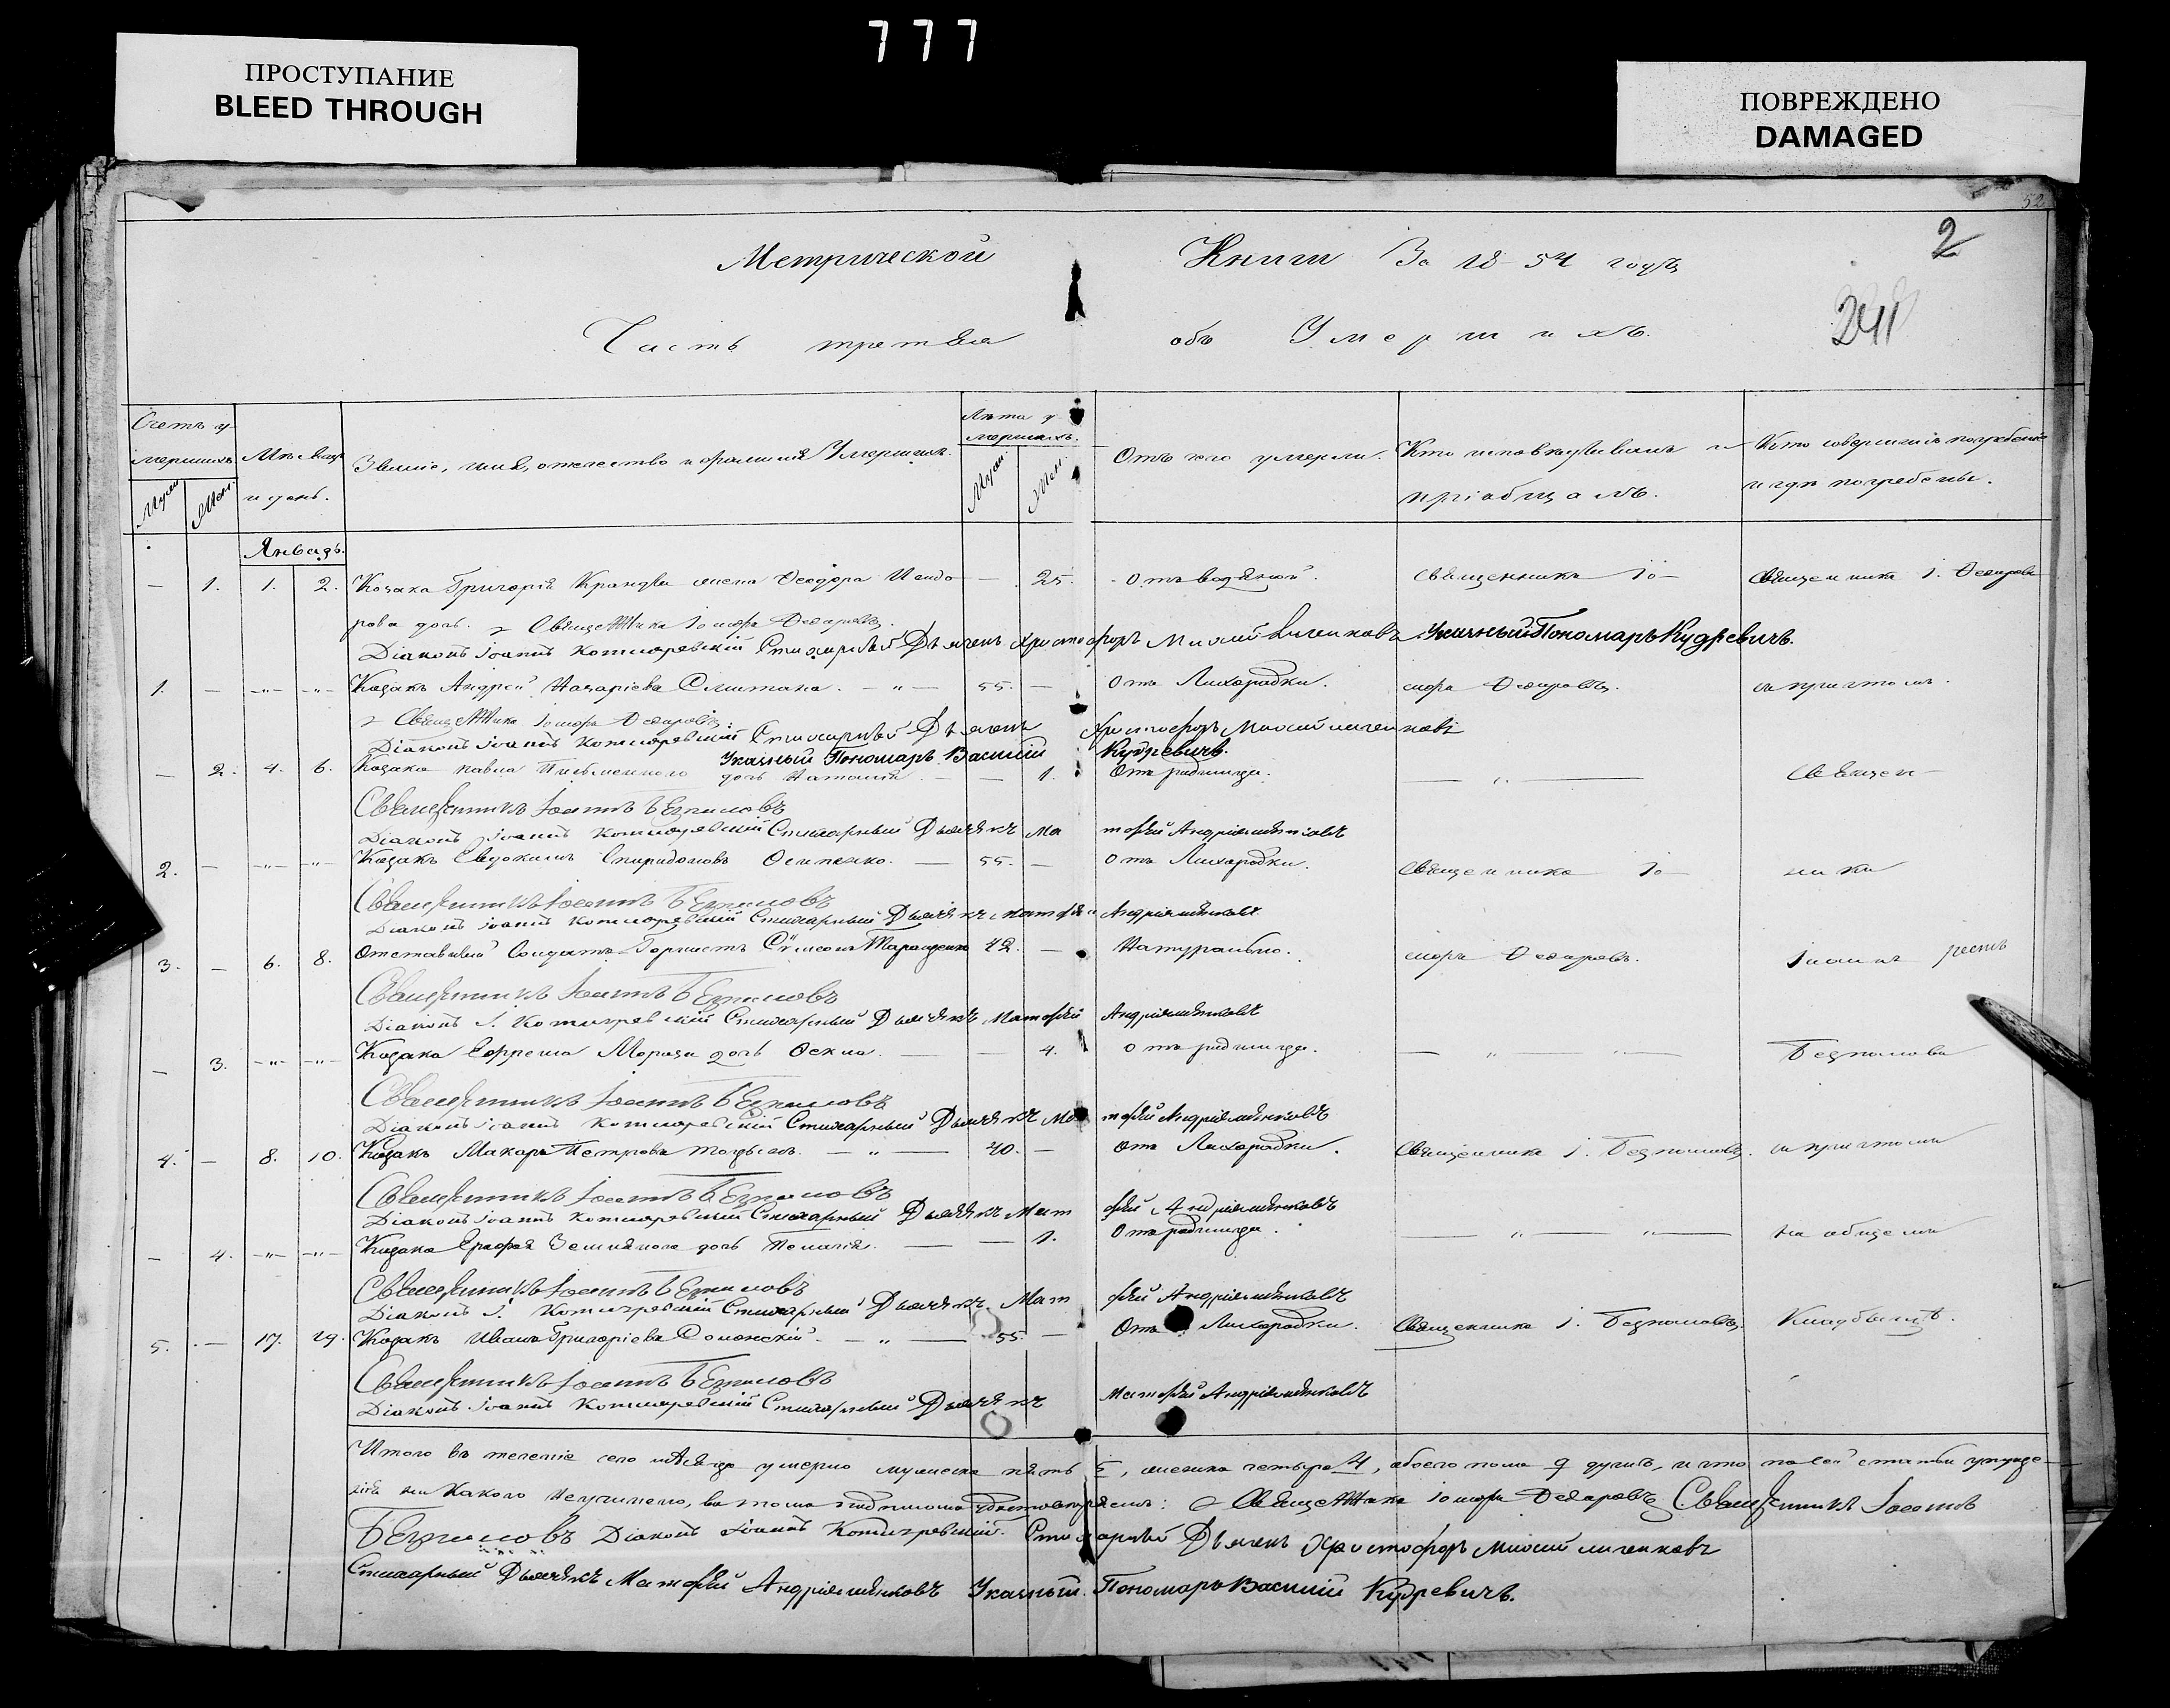 777
ПРОСТУПАНИЕ
BLEED THROUGH
ПОВРЕЖДЕНО
DAMAGED
52
2
241
Метрической Книги За 18 54 годъ
Часть третья объ Умершихъ.
Счетъ умершихъ
Муж. Жен.
Мѣсяцъ и день.
Званіе, имя, отчество и фамилія Умершихъ.
Лѣта умершихъ.
Муж. Жен.
Отъ чего умерли.
Кто исповѣдывалъ и пріобщалъ.
Кто совершалъ погребеніе и гдѣ погребены.
Январь.
— 1. 1. 2. Козака Григорія жена Феодора — 25. Отъ водяной. Священникъ Іо- Священника І. Федоровъ
рова дочь. Священника Федоровъ
Діаконъ Іоаннъ Котляревскій Стихарный Дьячекъ Христофоръ Указный Пономарь Кудревичъ.
1. — -"- -"- Козакъ Андрей Назаріевъ Сметана. — " — 55. — Отъ Лихорадки. Федоровъ. съ причтомъ.
Священника Федоровъ
Діаконъ Іоаннъ Котляревскій Стихарный Дьячекъ Христофоръ
Указный Пономарь Василій Кудревичъ.
— 2. 4. 6. Козака Павла Письменного дочь Наталія — — 1. Отъ родимца. — " — Священ-
Священникъ Іоаннъ Безпаловъ
Діаконъ Іоаннъ Котляревскій Стихарный Дьячекъ Матфей Андріяшенковъ
2. — -"- -"- Козакъ Евдокимъ Спиридоновъ Осипенко. — 55. — Отъ Лихорадки. Священника Іо- ника
Священникъ Іоаннъ Безпаловъ
Діаконъ Іоаннъ Котляревскій Стихарный Дьячекъ Матфей Андріяшенковъ
3. — 6. 8. Отставный Солдатъ Горнистъ Сѵмеонъ 72. — Натурально. Федоровъ. Іоанна
Священникъ Іоаннъ Безпаловъ
Діаконъ І. Котляревскій Стихарный Дьячекъ Матфей Андріяшенковъ
— 3. -"- -"- Козака Ефрема Мороза дочь — — 4. Отъ родимца. — " — " — Безпалова
Священникъ Іоаннъ Безпаловъ
Діаконъ Іоаннъ Котляревскій Стихарный Дьячекъ Матфей Андріяшенковъ
4. — 8. 10. Козакъ Макаръ Петровъ — " — 40. — Отъ Лихорадки. Священника І. Безпаловъ. съ причтомъ
Священникъ Іоаннъ Безпаловъ
Діаконъ Іоаннъ Котляревскій Стихарный Дьячекъ Матфей Андріяшенковъ
— 4. -"- -"- Козака дочь Пелагія. — — 1. Отъ родимца. — " — " — на общемъ
Священникъ Іоаннъ Безпаловъ
Діаконъ І. Котляревскій Стихарный Дьячекъ Матфей Андріяшенковъ
5. — 17. 19. Козакъ Иванъ Григоріевъ — " — 55. — Отъ Лихорадки. Священника І. Безпаловъ. Кладбищѣ.
Священникъ Іоаннъ Безпаловъ
Діаконъ Іоаннъ Котляревскій Стихарный Дьячекъ Матфей Андріяшенковъ
Итого въ теченіе сего мѣсяца умерло мужеска пять 5, женска четыре 4, обоего пола 9 душъ, и что по сей статьи упуще-
нія ни какого неучинено, въ томъ подписомъ удостовѣряемъ: Священника Федоровъ Священникъ Іоаннъ
Безпаловъ Діаконъ Іоаннъ Котляревскій. Стихарный Дьячекъ Христофоръ
Стихарный Дьячекъ Матфей Андріяшенковъ Указный Пономарь Василій Кудревичъ.